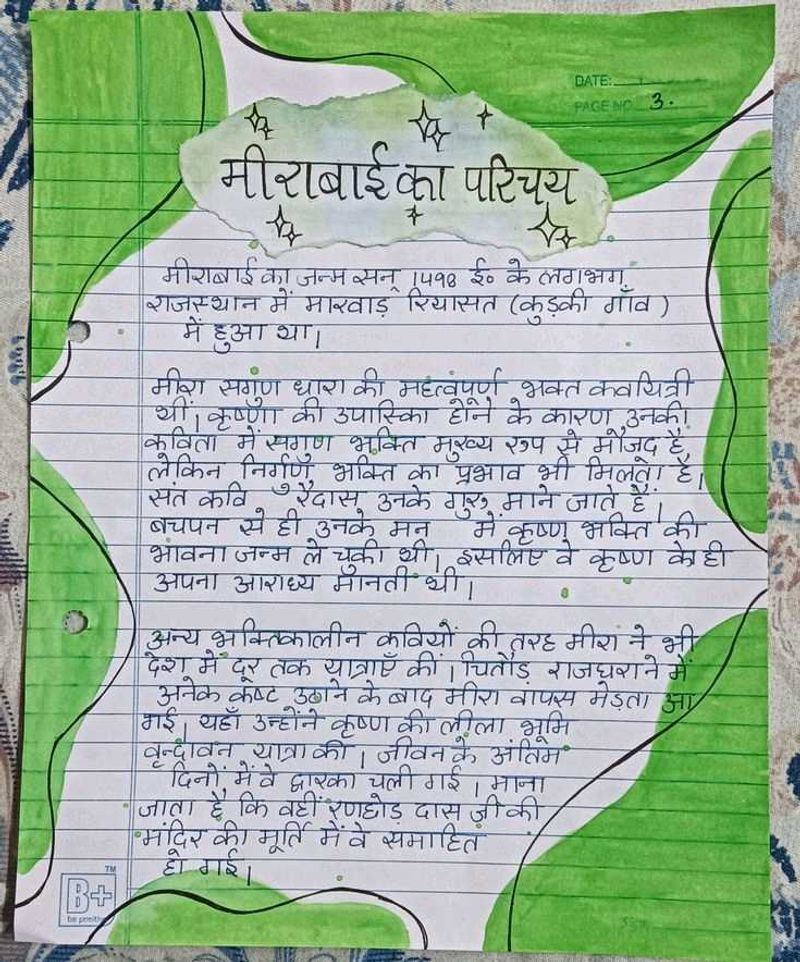 DATE:
PAGE NO. 3.
मीराबाई का परिचय
मीराबाई का जन्म सन् 1498 ई० के लगभग
राजस्थान में मारवाड़ रियासत (कुड़की गाँव)
में हुआ था।
मीरा सगुण धारा की महत्वपूर्ण भक्त कवयित्री
थीं। कृष्णा की उपासिका होने के कारण उनकी
कविता में सगुण भक्ति मुख्य रूप से मौजूद है
लेकिन निर्गुण भक्ति का प्रभाव भी मिलता है।
संत कवि रैदास उनके गुरु माने जाते हैं।
बचपन से ही उनके मन में कृष्ण भक्ति की
भावना जन्म ले चुकी थी। इसलिए वे कृष्ण के ही
अपना आराध्य मानती थी।
अन्य भक्तिकालीन कवियों की तरह मीरा ने भी
देश में दूर तक यात्राएँ कीं। चितौड़ राजघराने में
अनेक कष्ट उठाने के बाद मीरा वापस मेड़ता आ
गई। यहाँ उन्होंने कृष्ण की लीला भूमि
वृन्दावन यात्रा की। जीवन के अंतिम
दिनों में वे द्वारका चली गई। माना
जाता है कि वहीं रणछोड़ दास जी की
मंदिर की मूर्ति में वे समाहित
हो गई।
B+ TM
be positive